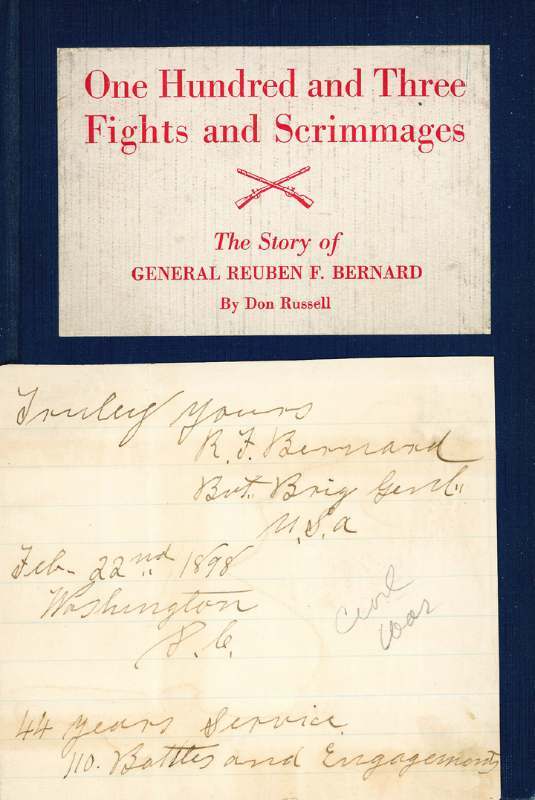 One Hundred and Three
Fights and Scrimmages
The Story of
GENERAL REUBEN F. BERNARD
By Don Russell
Truley yours
R. F. Bernard
Bvt. Brig Genl.
U.S.a
Feb- 22nd 1898
Washington
D.C.
Civil
War
44 years Service.
110. Battles and Engagements